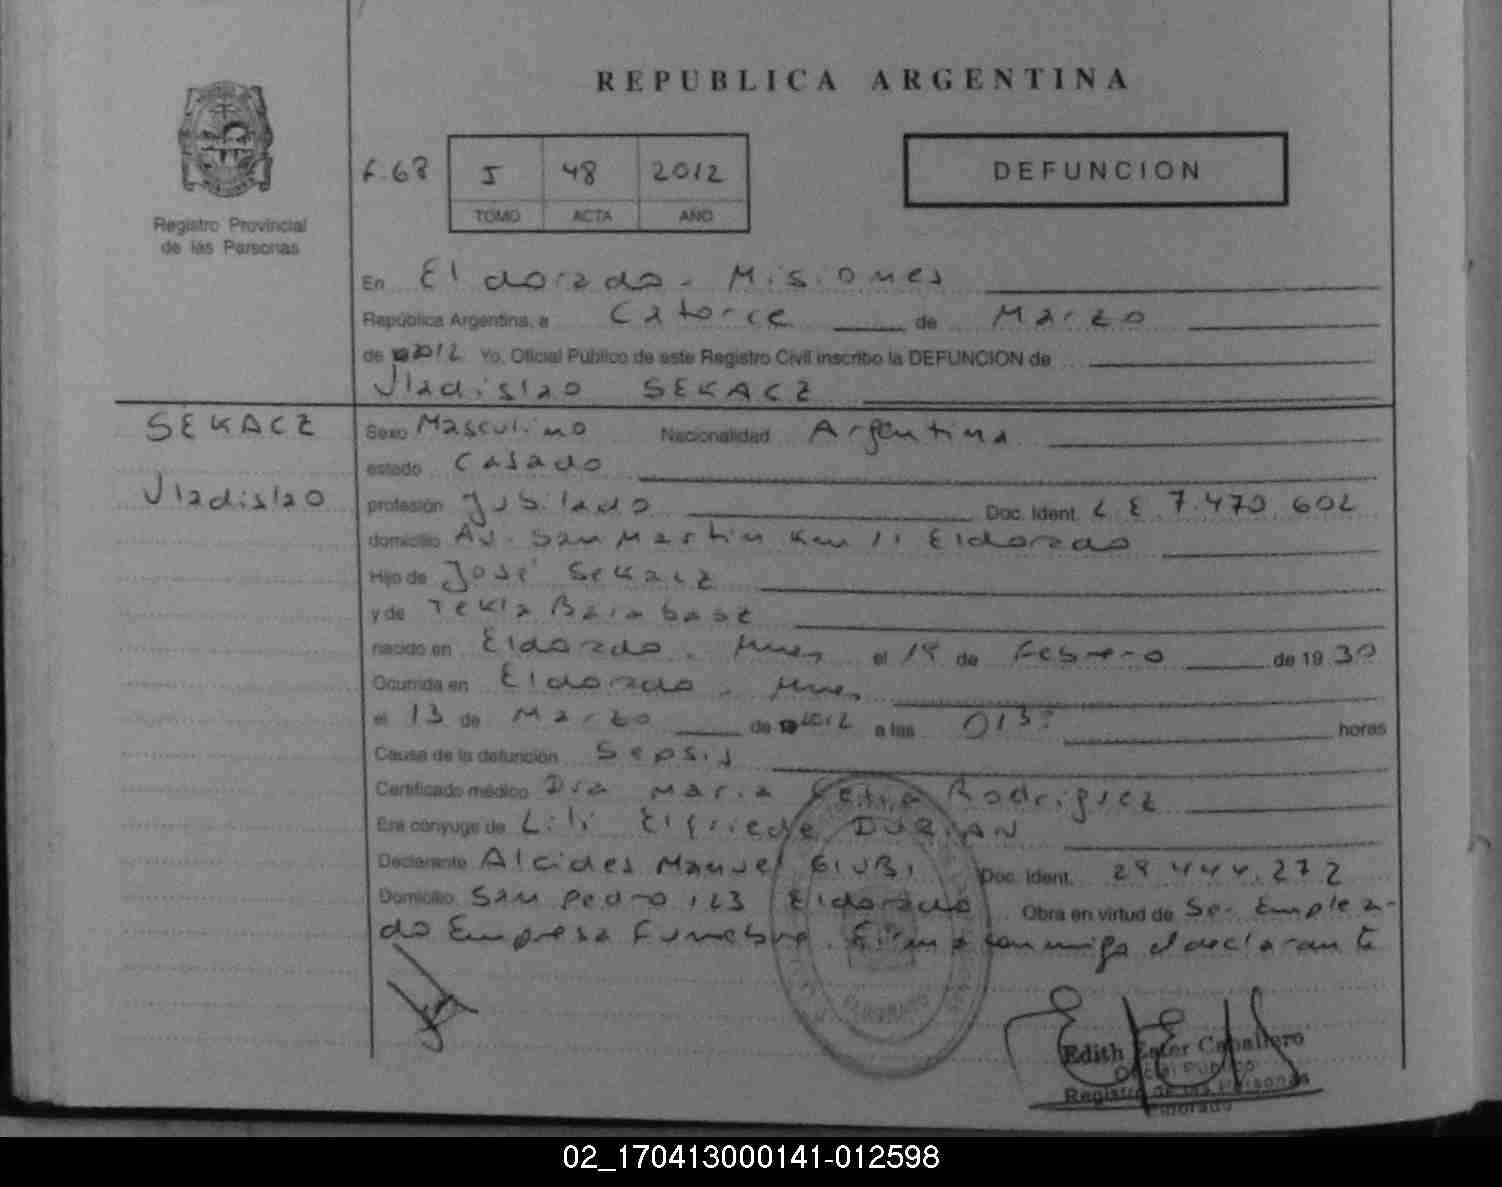 REPUBLICA ARGENTINA
Registro Provincial
de las Personas
F. 68
I 48 2012
TOMO ACTA AÑO
DEFUNCION
En Eldorado - Misiones
República Argentina, a Catorce de Marzo
de 2012 Yo, Oficial Público de este Registro Civil inscribo la DEFUNCION de
Vladislao SEKACZ
SEKACZ
Vladislao
Sexo Masculino Nacionalidad Argentina
estado Casado
profesión Jubilado Doc. Ident. L E 7.470.602
domicilio Av. San Martin Km 11 Eldorado
Hijo de José Sekacz
y de Tekla Barabasz
nacido en Eldorado - Mnes el 19 de Febrero de 19 30
Ocurrida en Eldorado - Mnes
el 13 de Marzo de 2012 a las 0130 horas
Causa de la defunción Sepsis
Certificado médico Dra Maria Rodriguez
Era cónyuge de Lili Elfriede DURIAN
Declarante Alcides Manuel GIUBI Doc. Ident. 29.444.272
Domicilio San Pedro 123 Eldorado Obra en virtud de Ser Emplea-
do Empresa Funebre. Firma conmigo el declarante
Edith Ester Caballero
Oficial Público
Registro de las Personas
Eldorado
02_170413000141-012598